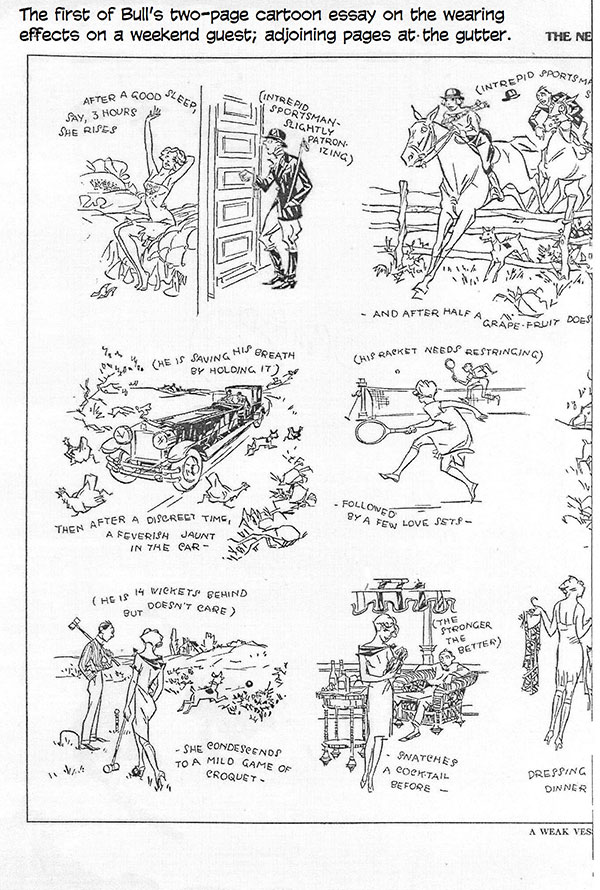 The first of Bull's two-page cartoon essay on the wearing
effects on a weekend guest; adjoining pages at the gutter.
THE NE
AFTER A GOOD SLEEP,
SAY, 3 HOURS
SHE RISES
(INTREPID
SPORTSMAN-
SLIGHTLY
PATRON-
IZING)
(INTREPID SPORTSMA
S
- AND AFTER HALF A
GRAPE-FRUIT DOES
(HE IS SAVING HIS BREATH
BY HOLDING IT)
THEN AFTER A DISCREET TIME,
A FEVERISH JAUNT
IN THE CAR -
(HIS RACKET NEEDS RESTRINGING)
- FOLLOWED
BY A FEW LOVE SETS -
(HE IS 14 WICKETS BEHIND
BUT DOESN'T CARE)
- SHE CONDESCENDS
TO A MILD GAME OF
CROQUET -
(THE
STRONGER
THE
BETTER)
- SNATCHES
A COCKTAIL
BEFORE -
DRESSING
DINNER
A WEAK VES